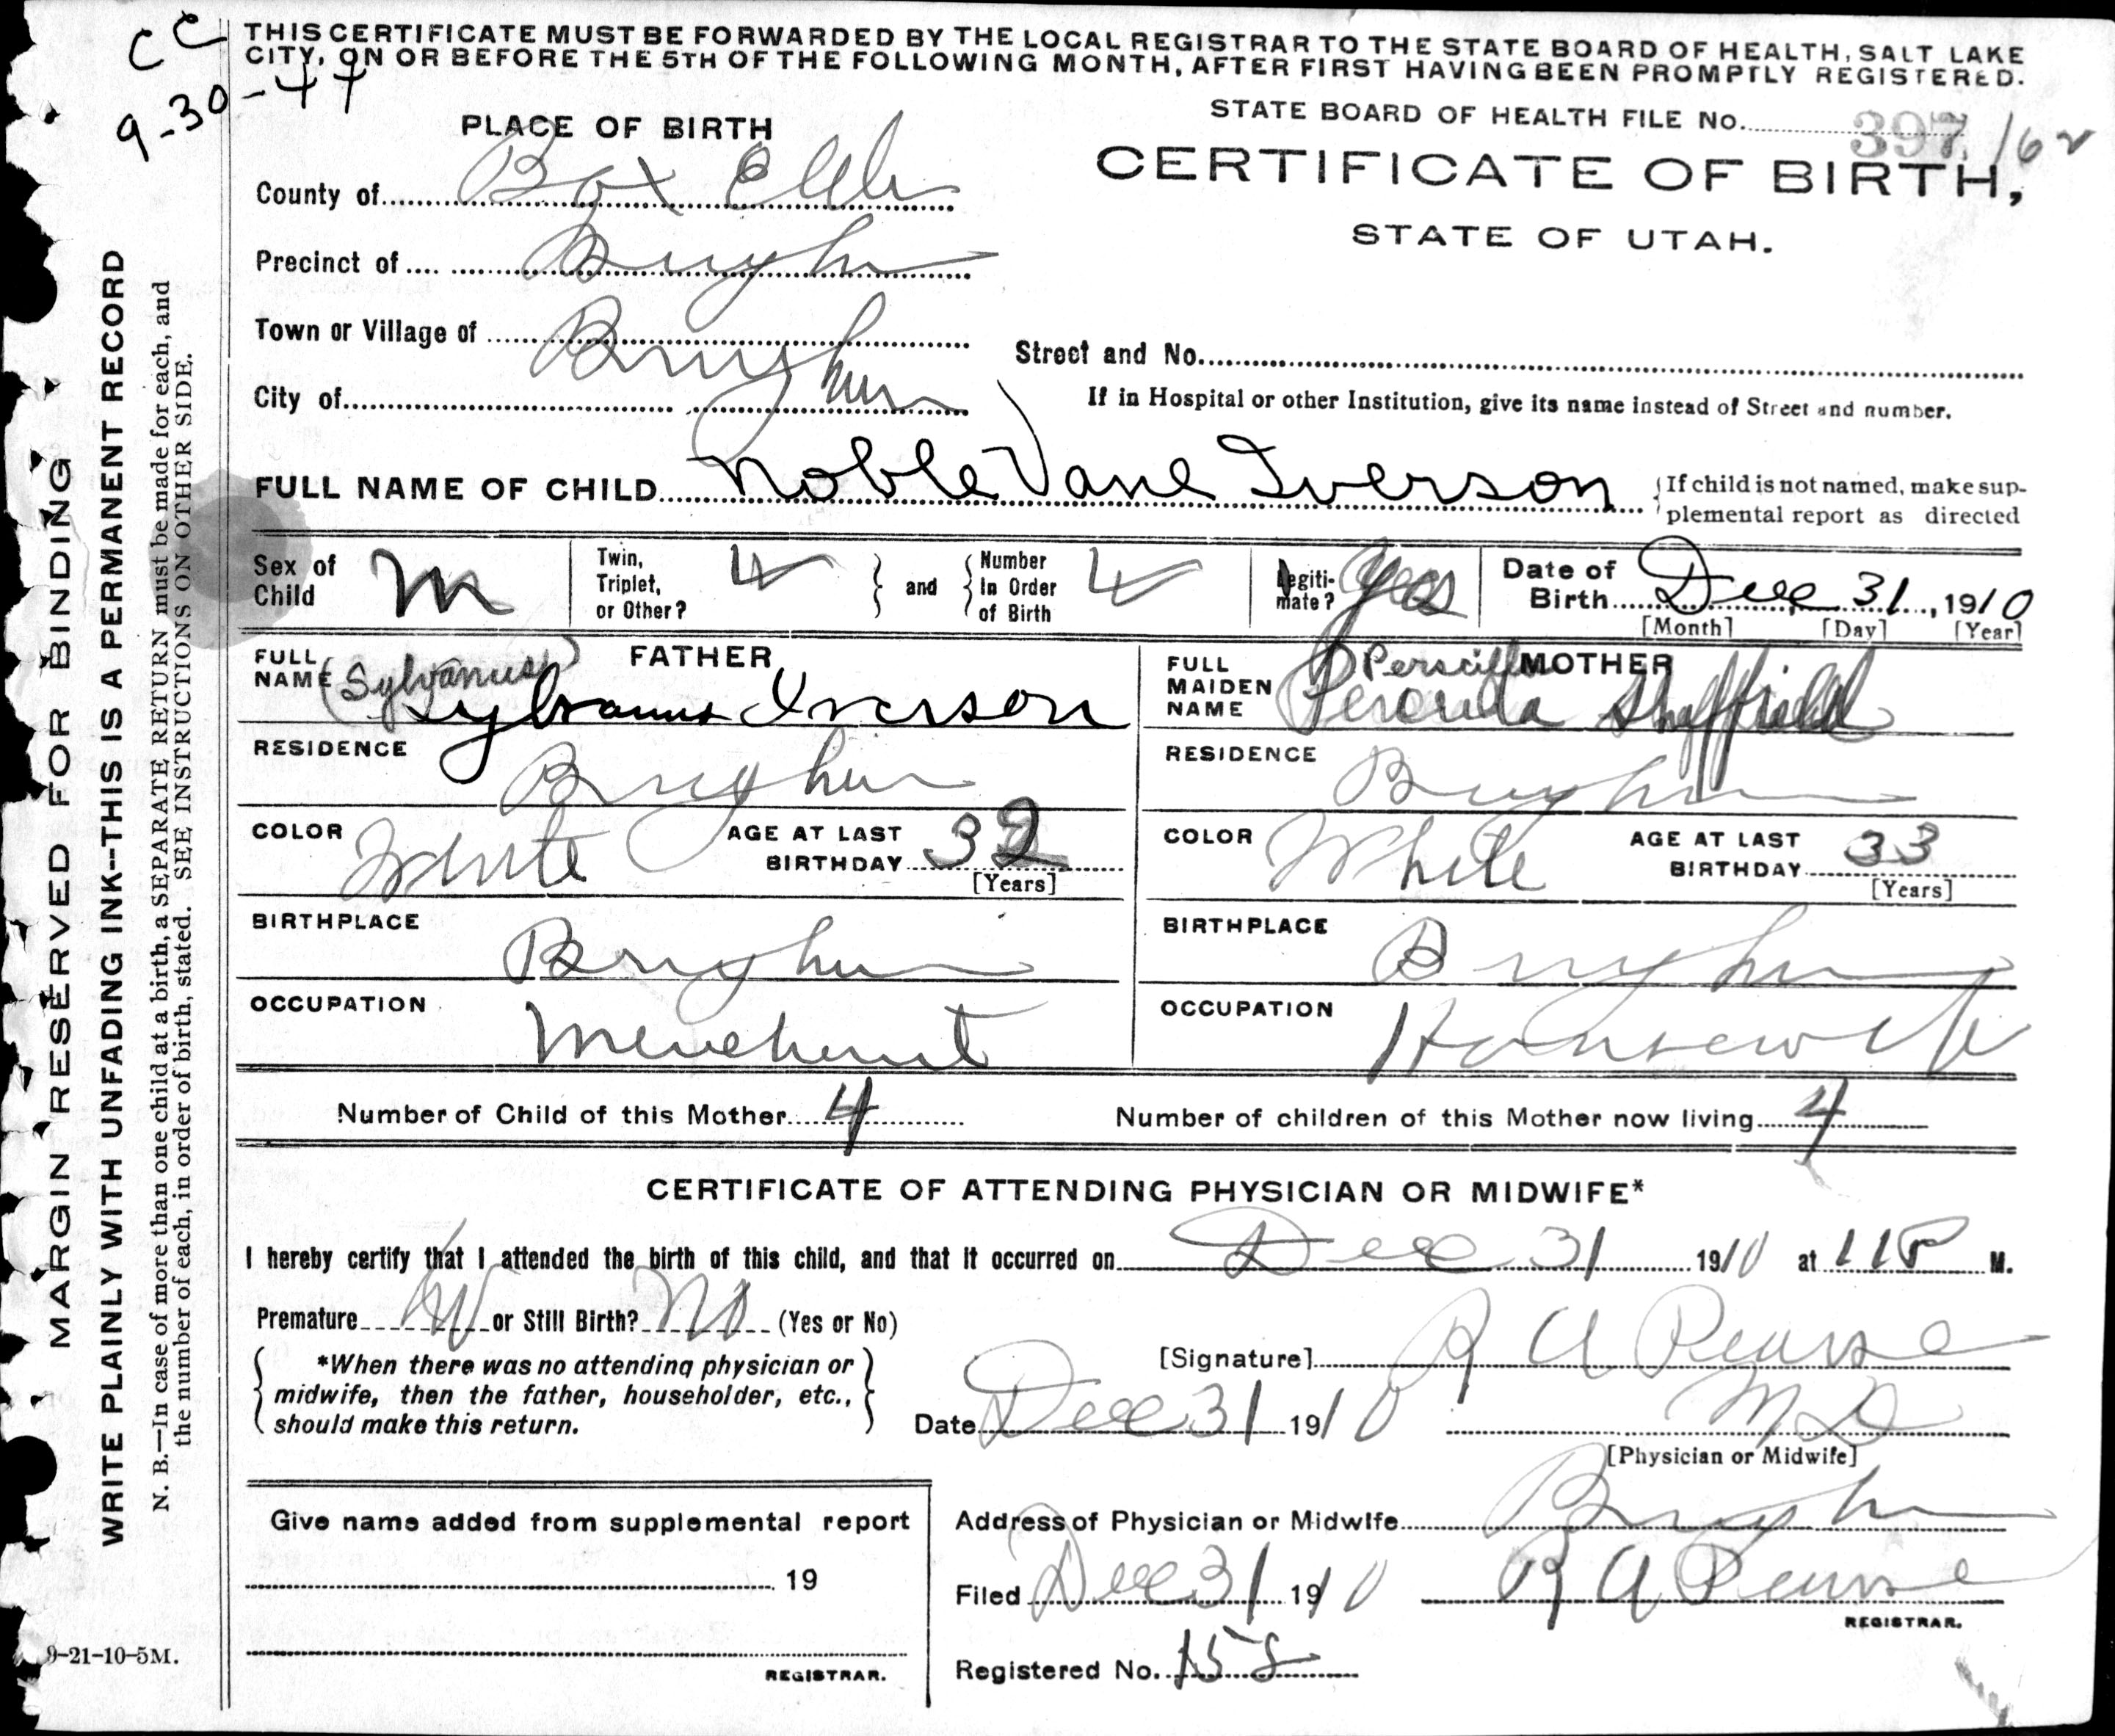 CC
9-30-47
THIS CERTIFICATE MUST BE FORWARDED BY THE LOCAL REGISTRAR TO THE STATE BOARD OF HEALTH, SALT LAKE
CITY, ON OR BEFORE THE 5TH OF THE FOLLOWING MONTH, AFTER FIRST HAVING BEEN PROMPTLY REGISTERED.
STATE BOARD OF HEALTH FILE No. 397 162
PLACE OF BIRTH
CERTIFICATE OF BIRTH,
STATE OF UTAH.
County of Box Elder
Precinct of Brigham
Town or Village of Brigham
Street and No.
City of
If in Hospital or other Institution, give its name instead of Street and number.
FULL NAME OF CHILD Noble Vane Iverson
{If child is not named, make sup-
plemental report as directed
Sex of Child M
Twin, Triplet, or Other? 4 } and { Number In Order of Birth 4
Legiti-mate? Yes
Date of Birth Dec 31, 1910
[Month] [Day] [Year]
FATHER
FULL NAME (Sylvanus) Sylvanus Iverson
RESIDENCE Brigham
COLOR White AGE AT LAST BIRTHDAY 32
[Years]
BIRTHPLACE Brigham
OCCUPATION Merchant
MOTHER
FULL MAIDEN NAME Sheffield
RESIDENCE Brigham
COLOR White AGE AT LAST BIRTHDAY 33
[Years]
BIRTHPLACE Brigham
OCCUPATION Housewife
Number of Child of this Mother 4 Number of children of this Mother now living 4
CERTIFICATE OF ATTENDING PHYSICIAN OR MIDWIFE*
I hereby certify that I attended the birth of this child, and that it occurred on Dec 31 1910 at 11 P M.
Premature No or Still Birth? No (Yes or No)
{ *When there was no attending physician or }
midwife, then the father, householder, etc.,
should make this return.
[Signature] R A Pearse
Date Dec 31 1910 M D
[Physician or Midwife]
Give name added from supplemental report
19
REGISTRAR.
Address of Physician or Midwife Brigham
Filed Dec 31 1910 R A Pearse
REGISTRAR.
Registered No. 158
MARGIN RESERVED FOR BINDING
WRITE PLAINLY WITH UNFADING INK--THIS IS A PERMANENT RECORD
N. B.—In case of more than one child at a birth, a SEPARATE RETURN must be made for each, and
the number of each, in order of birth, stated. SEE INSTRUCTIONS ON OTHER SIDE.
9-21-10-5M.